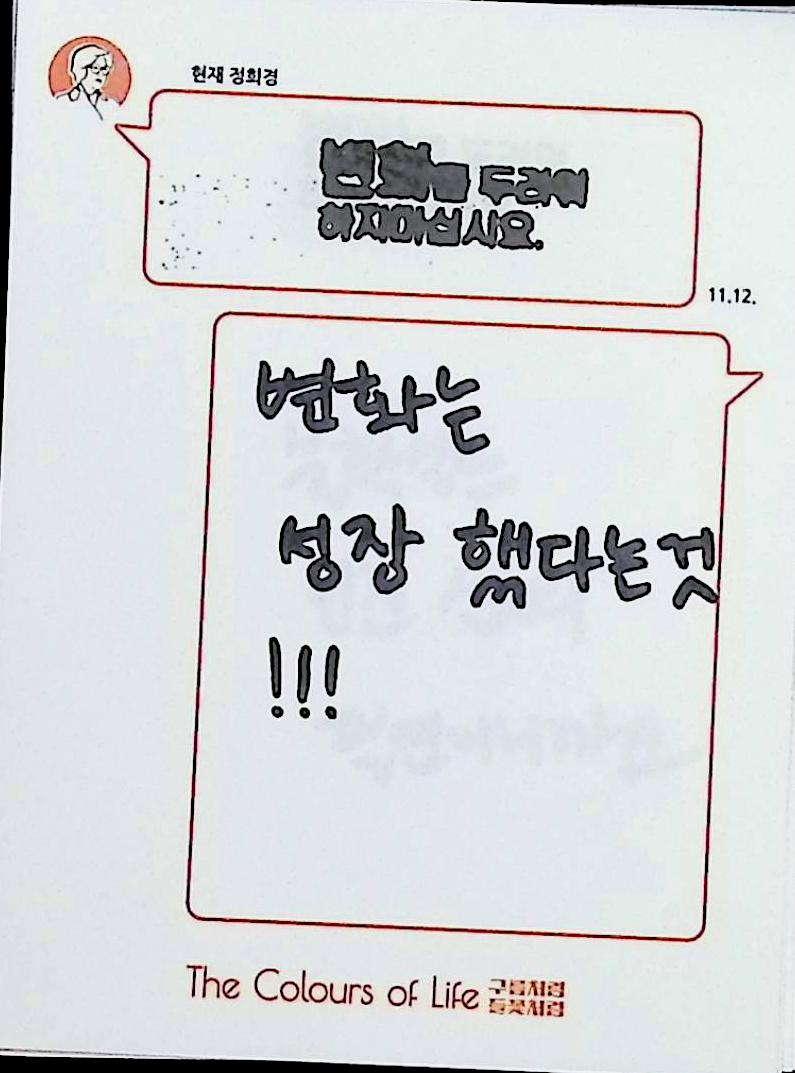 현재 정희경
변화를 두려워
하지마십시요.
11.12.
변화는
성장 했다는것
!!!
The Colours of Life 구름처럼
들꽃처럼